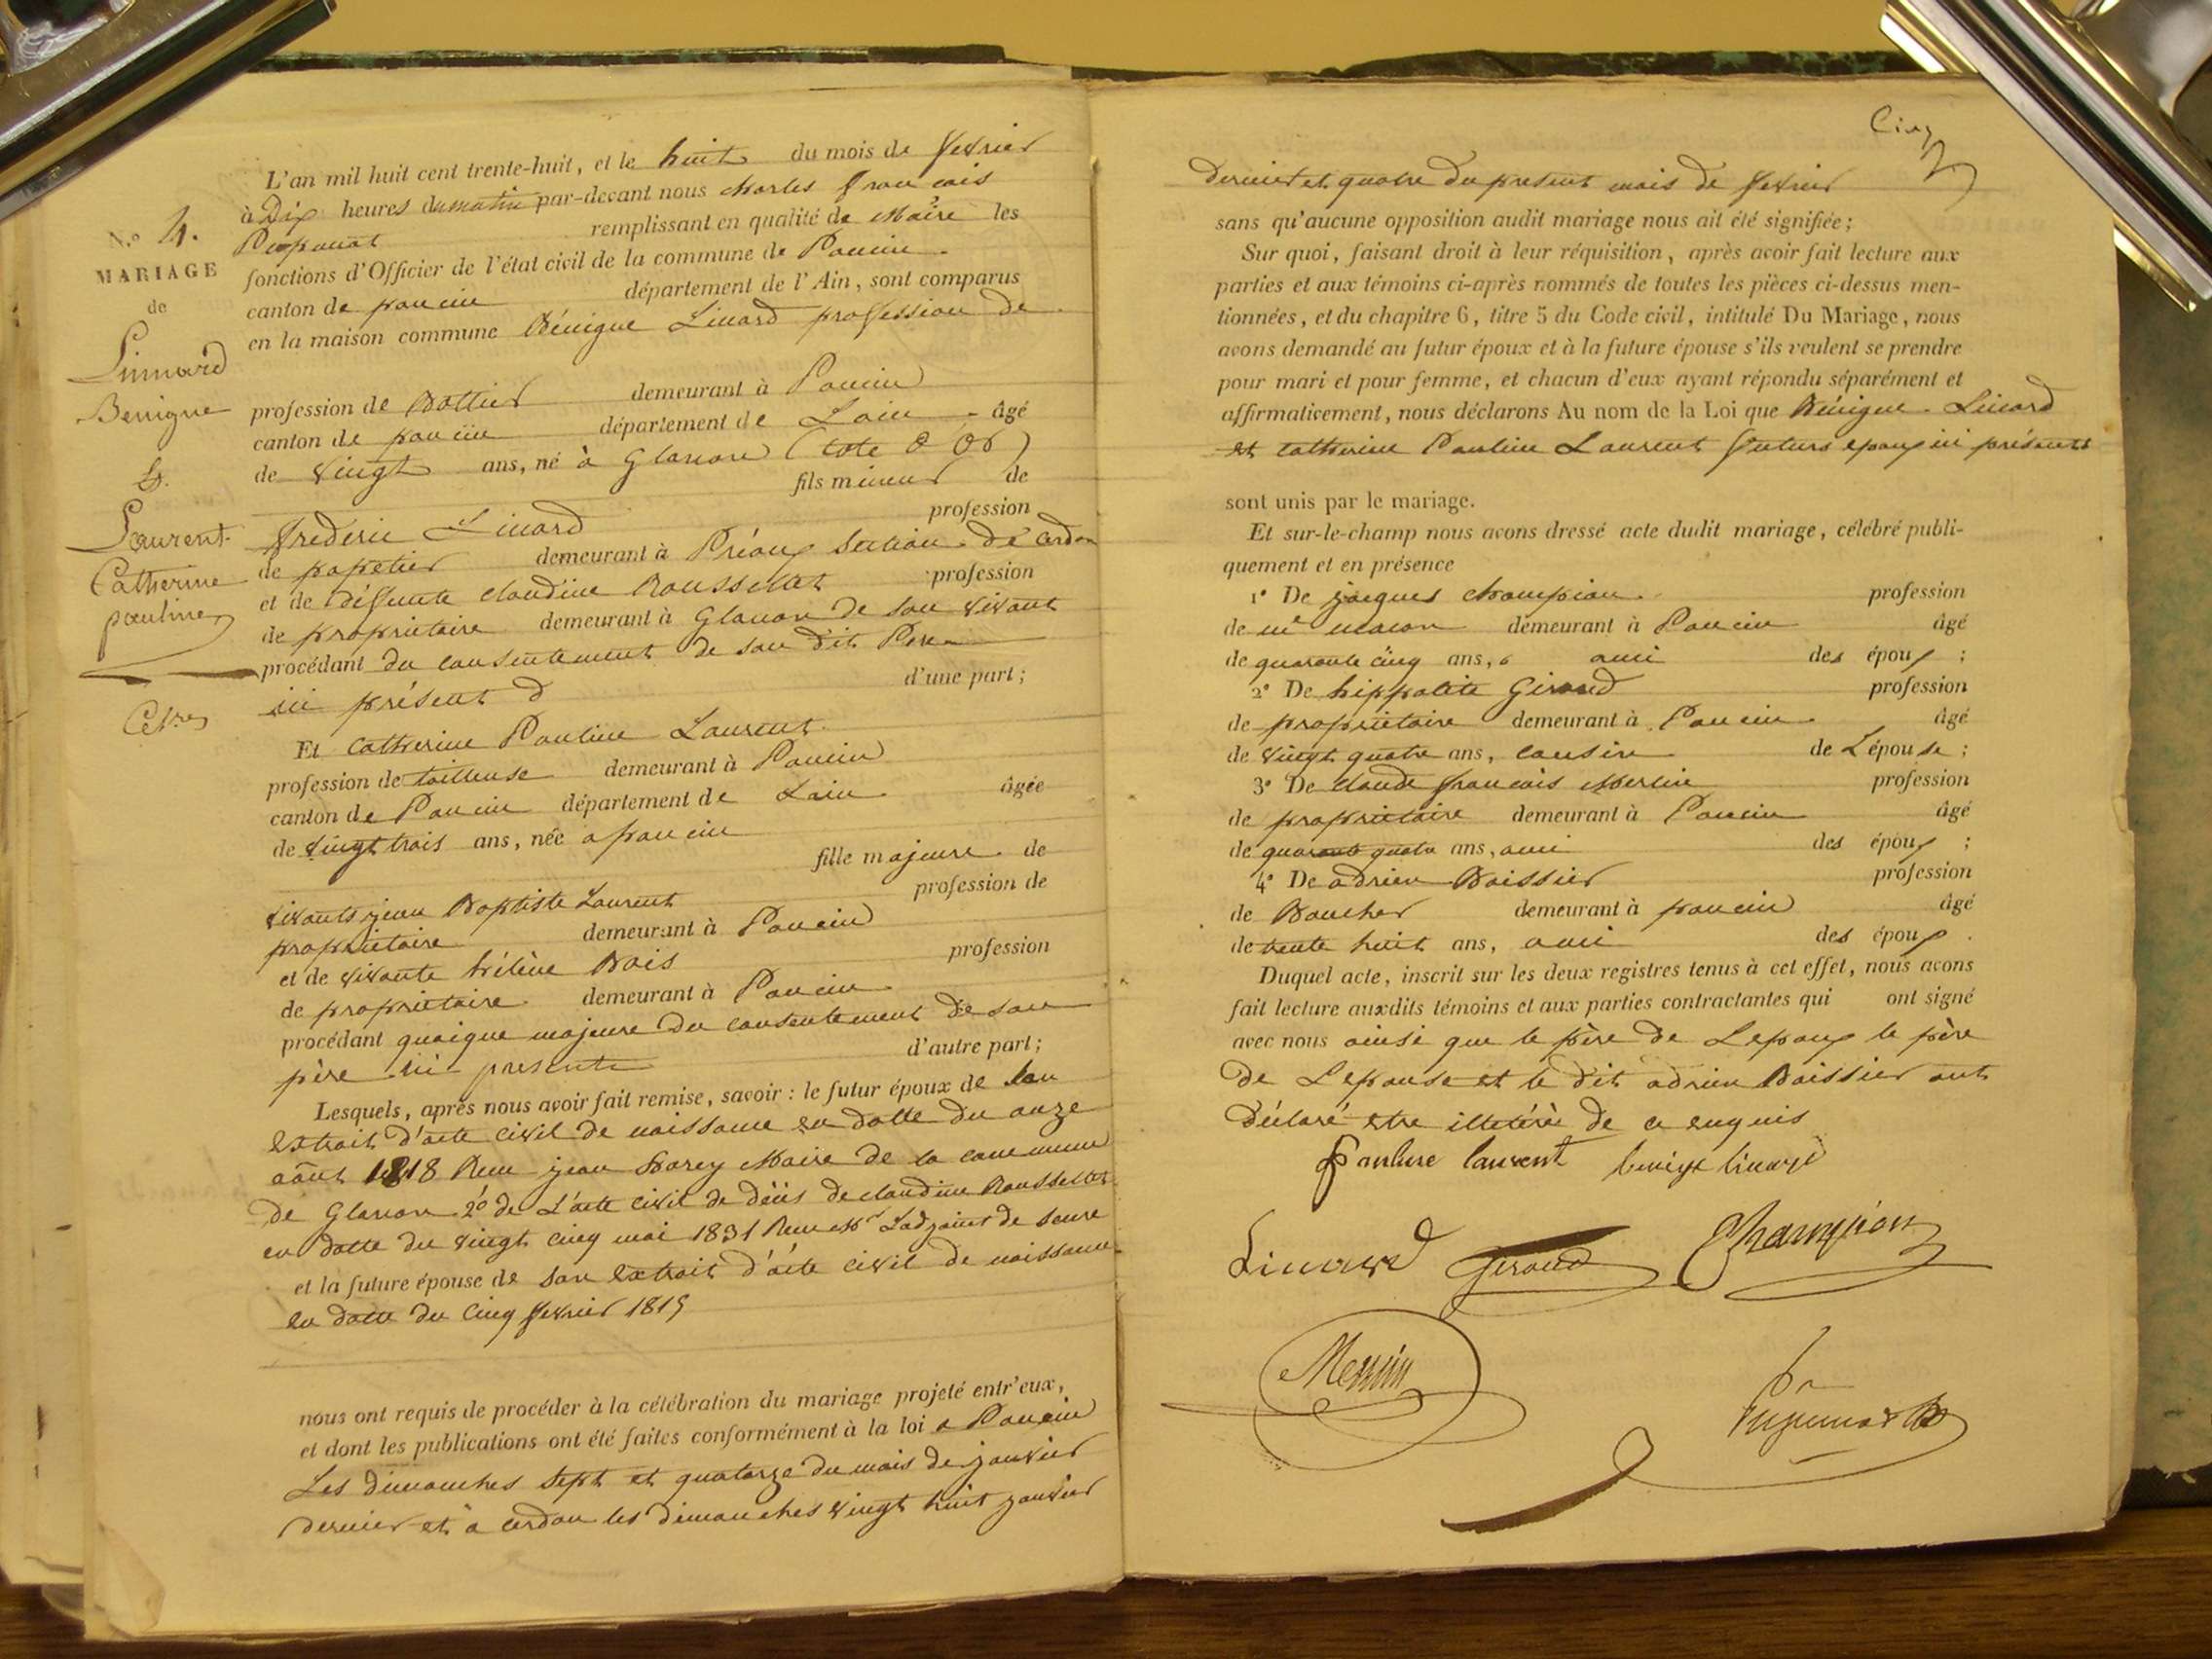 N.º 4.
MARIAGE
de
Linnard
Benigne
&.
Laurent
Catherine
pauline
L'an mil huit cent trente-huit, et le huit du mois de fevrier
à Dix heures du matin par-devant nous charles francois
remplissant en qualité de Maire les
fonctions d'Officier de l'état civil de la commune de Poncin
canton de poncin département de l'Ain, sont comparus
en la maison commune Bénigne Linard profession de
profession de Bottier demeurant à Poncin
canton de poncin département de Lain âgé
de vingt ans, né à Glanon (Cote d'Or)
fils mineur de
profession
frederic Linard
de papetier demeurant à Préau section de Cerdon
et de défunte claudine Rousselet profession
de propriétaire demeurant à Glanon de son vivant
procédant du consentement de son dit Pere
ici présent d'une part;
Et Catherine Pauline Laurent
profession de tailleuse demeurant à Poncin
canton de Poncin département de Lain âgée
de vingt trois ans, née a poncin
fille majeure de
profession de
vivants jean Baptiste Laurent
propriétaire demeurant à Poncin
et de vivante hélène Bois profession
de propriétaire demeurant à Poncin
procédant quoique majeure du consentement de son
père ici présente d'autre part;
Lesquels, après nous avoir fait remise, savoir: le futur époux de son
extrait d'acte civil de naissance en datte du onze
août 1818 Reçu jean Maire de la commune
de Glanon 2º de L'acte civil de décès de claudine Rousselet
en datte du vingt cinq mai 1831 Reçu Ladjoint de seure
et la future épouse de son extrait d'acte civil de naissance
en datte du cinq fevrier 1815
nous ont requis de procéder à la célébration du mariage projeté entr'eux,
et dont les publications ont été faites conformément à la loi a Poncin
Les dimanches sept et quatorze du mois de janvier
dernier et à cerdon les dimanches vingt huit janvier
Cinq
dernier et quatre du present mois de fevrier
sans qu'aucune opposition audit mariage nous ait été signifiée;
Sur quoi, faisant droit à leur réquisition, après avoir fait lecture aux
parties et aux témoins ci-après nommés de toutes les pièces ci-dessus men-
tionnées, et du chapitre 6, titre 5 du Code civil, intitulé Du Mariage, nous
avons demandé au futur époux et à la future épouse s'ils veulent se prendre
pour mari et pour femme, et chacun d'eux ayant répondu séparément et
affirmativement, nous déclarons Au nom de la Loi que Bénigne Linard
et Catherine Pauline Laurent futurs epoux ici présents
sont unis par le mariage.
Et sur-le-champ nous avons dressé acte dudit mariage, célébré publi-
quement et en présence
1º De jacques champion profession
de me macon demeurant à Poncin âgé
de quarante cinq ans, ami des époux;
2º De hippolite Giroud profession
de propriétaire demeurant à Poncin âgé
de vingt quatre ans, cousin de Lépouse;
3º De claude francois Merlin profession
de propriétaire demeurant à Poncin âgé
de quarante quatre ans, ami des époux;
4º De adrien Boissier profession
de Boucher demeurant à poncin âgé
de trente huit ans, ami des époux.
Duquel acte, inscrit sur les deux registres tenus à cet effet, nous avons
fait lecture auxdits témoins et aux parties contractantes qui ont signé
avec nous ainsi que le père de Lepoux le père
de Lepouse et le dit adrien Boissier ont
déclaré etre illetéré de ce enquis
Pauline laurent benigne linard
Linard Giroud Champion